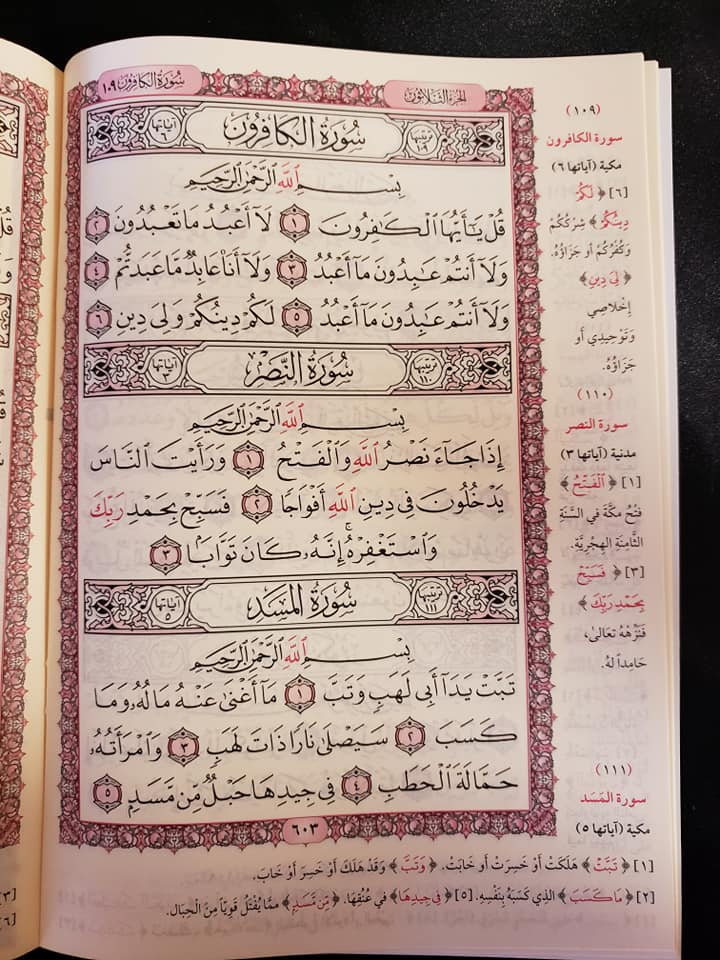 سُورَةُ الكَافِرُونَ ١٠٩
الجُزْءُ الثَّلَاثُونَ
ترتيبها ١٠٩ سُورَةُ الكَافِرُونَ آياتها ٦
بِسْمِ ٱللَّهِ ٱلرَّحْمَٰنِ ٱلرَّحِيمِ
قُلْ يَٰٓأَيُّهَا ٱلْكَٰفِرُونَ ١ لَآ أَعْبُدُ مَا تَعْبُدُونَ ٢
وَلَآ أَنتُمْ عَٰبِدُونَ مَآ أَعْبُدُ ٣ وَلَآ أَنَا۠ عَابِدٌ مَّا عَبَدتُّمْ ٤
وَلَآ أَنتُمْ عَٰبِدُونَ مَآ أَعْبُدُ ٥ لَكُمْ دِينُكُمْ وَلِىَ دِينِ ٦
ترتيبها ١١٠ سُورَةُ النَّصْرِ آياتها ٣
بِسْمِ ٱللَّهِ ٱلرَّحْمَٰنِ ٱلرَّحِيمِ
إِذَا جَآءَ نَصْرُ ٱللَّهِ وَٱلْفَتْحُ ١ وَرَأَيْتَ ٱلنَّاسَ
يَدْخُلُونَ فِى دِينِ ٱللَّهِ أَفْوَاجًا ٢ فَسَبِّحْ بِحَمْدِ رَبِّكَ
وَٱسْتَغْفِرْهُ ۚ إِنَّهُۥ كَانَ تَوَّابًۢا ٣
ترتيبها ١١١ سُورَةُ المَسَدِ آياتها ٥
بِسْمِ ٱللَّهِ ٱلرَّحْمَٰنِ ٱلرَّحِيمِ
تَبَّتْ يَدَآ أَبِى لَهَبٍ وَتَبَّ ١ مَآ أَغْنَىٰ عَنْهُ مَالُهُۥ وَمَا
كَسَبَ ٢ سَيَصْلَىٰ نَارًا ذَاتَ لَهَبٍ ٣ وَٱمْرَأَتُهُۥ
حَمَّالَةَ ٱلْحَطَبِ ٤ فِى جِيدِهَا حَبْلٌ مِّن مَّسَدٍۭ ٥
٦٠٣
(١٠٩)
سورة الكافرون
مكية (آياتها ٦)
[٦] ﴿ لَكُمْ
دِينُكُمْ ﴾ شِرْكُكُمْ
وَكُفْرُكُمْ أو جَزَاؤُهُ.
﴿ لِىَ دِينِ ﴾
إِخْلاصِي
وَتَوْحِيدِي أَو
جَزَاؤُهُ.
(١١٠)
سورة النصر
مدنية (آياتها ٣)
[١] ﴿ ٱلْفَتْحُ ﴾
فَتْحُ مَكَّةَ في السَّنَةِ
الثَّامِنَةِ الهِجْرِيَّةِ.
[٣] ﴿ فَسَبِّحْ
بِحَمْدِ رَبِّكَ ﴾
فَنَزِّهْهُ تَعَالىٰ،
حَامِداً لهُ.
(١١١)
سورة المَسَد
مكية (آياتها ٥)
[١] ﴿ تَبَّتْ ﴾ هَلَكَتْ أَوْ خَسِرَتْ أو خَابَتْ. ﴿ وَتَبَّ ﴾ وَقَدْ هَلَكَ أَوْ خَسِرَ أَوْ خَابَ.
[٢] ﴿ مَا كَسَبَ ﴾ الذِي كَسَبَهُ بِنَفْسِهِ. [٥] ﴿ فِى جِيدِهَا ﴾ في عُنُقِهَا. ﴿ مِّن مَّسَدٍ ﴾ ممَّا يُفْتَلُ قَوِيّاً مِنَ الحِبَالِ.